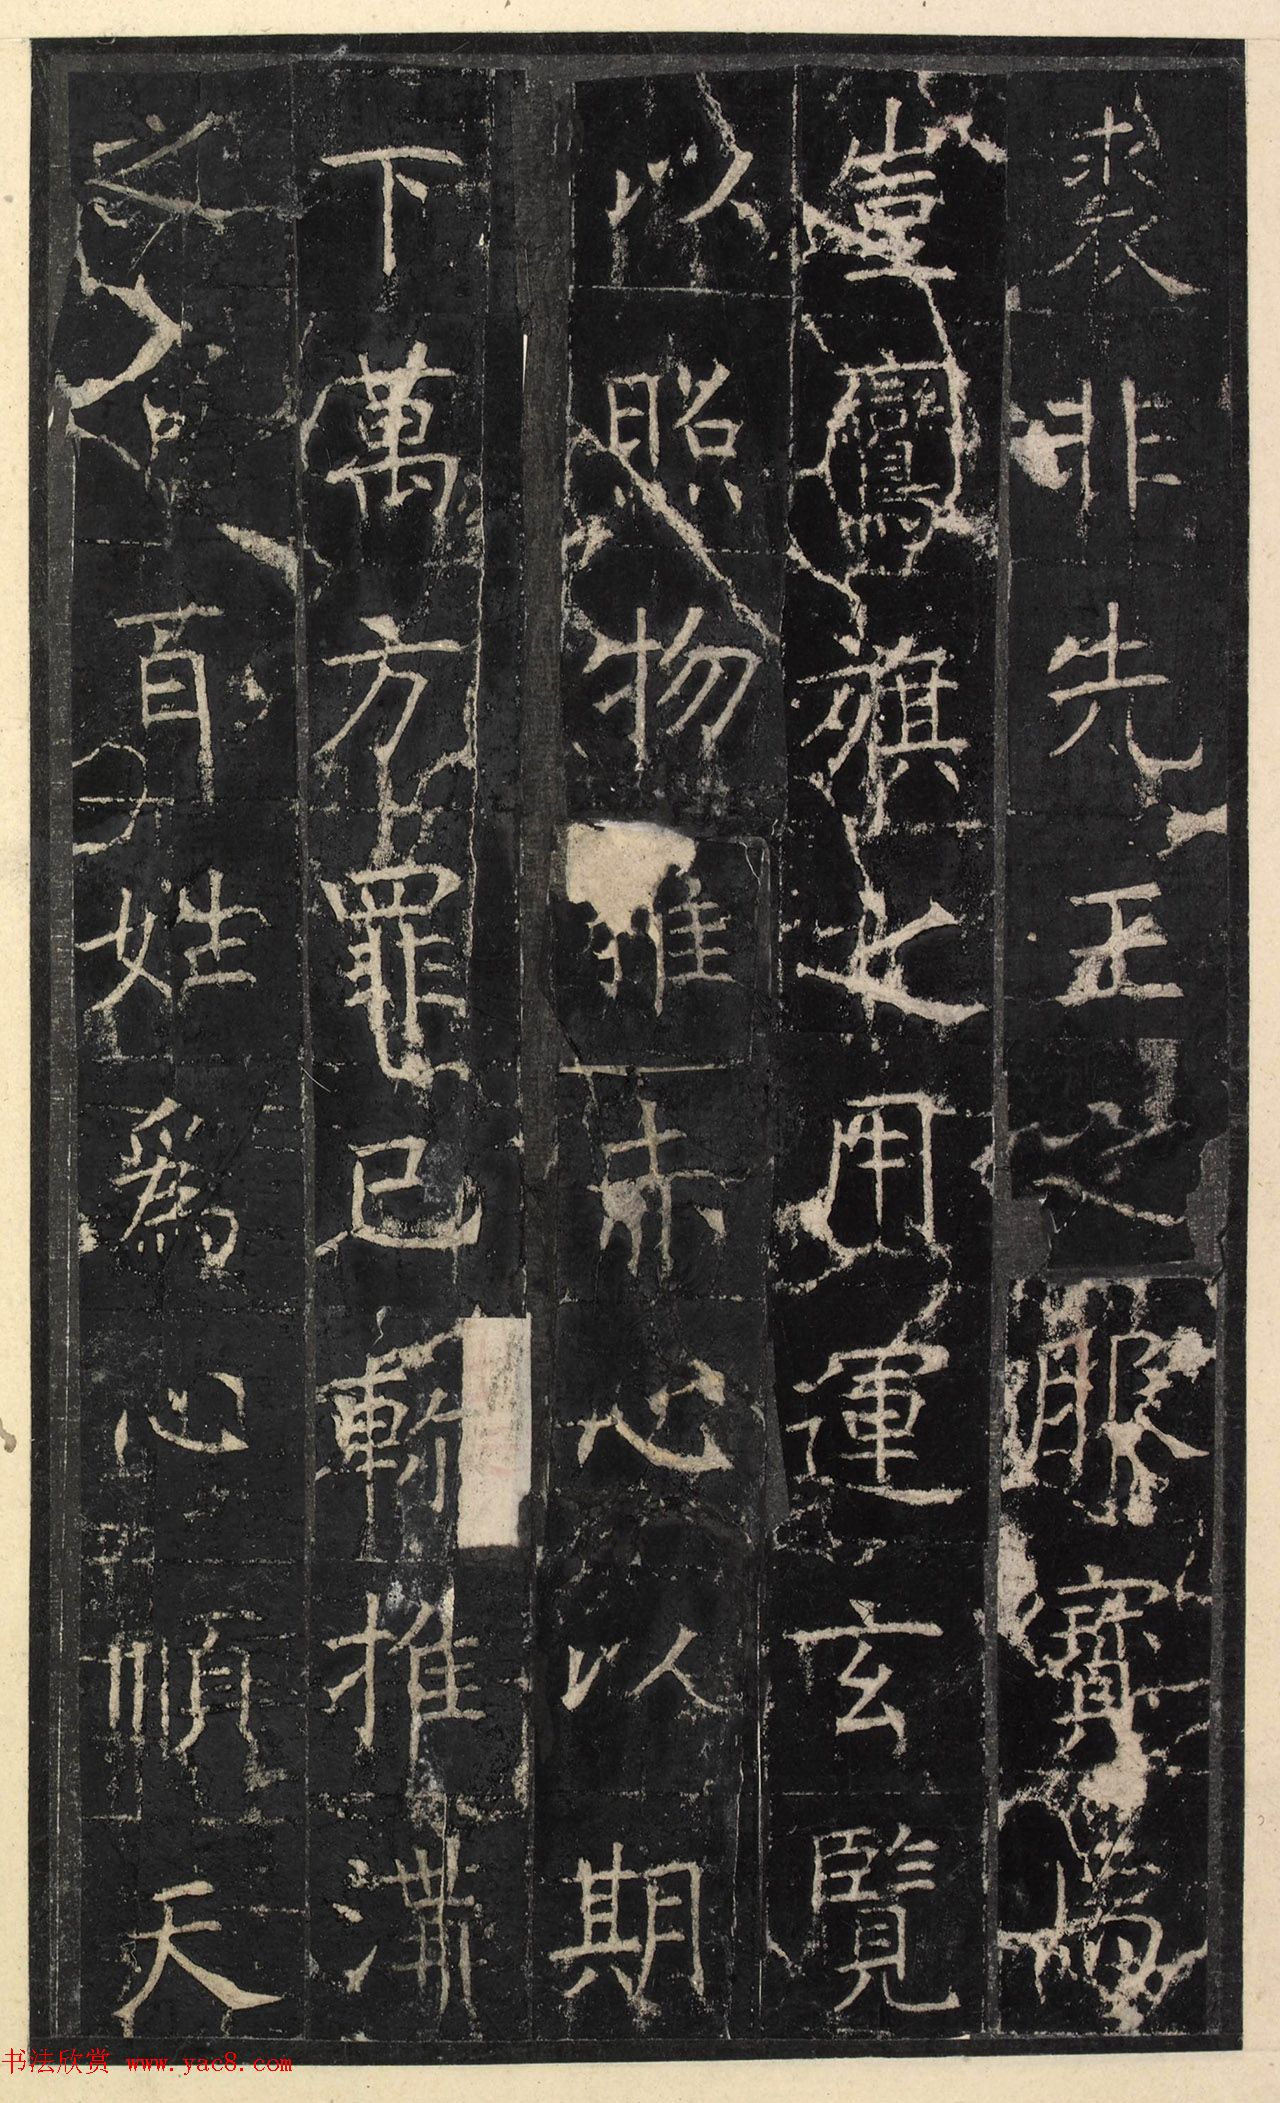 裘非先王之服寶
臺鸞旗之用運玄覽
以照物推赤心以期
下萬方罪己慙推溝
之 言百姓爲心順天
书法欣赏 www.yac8.com